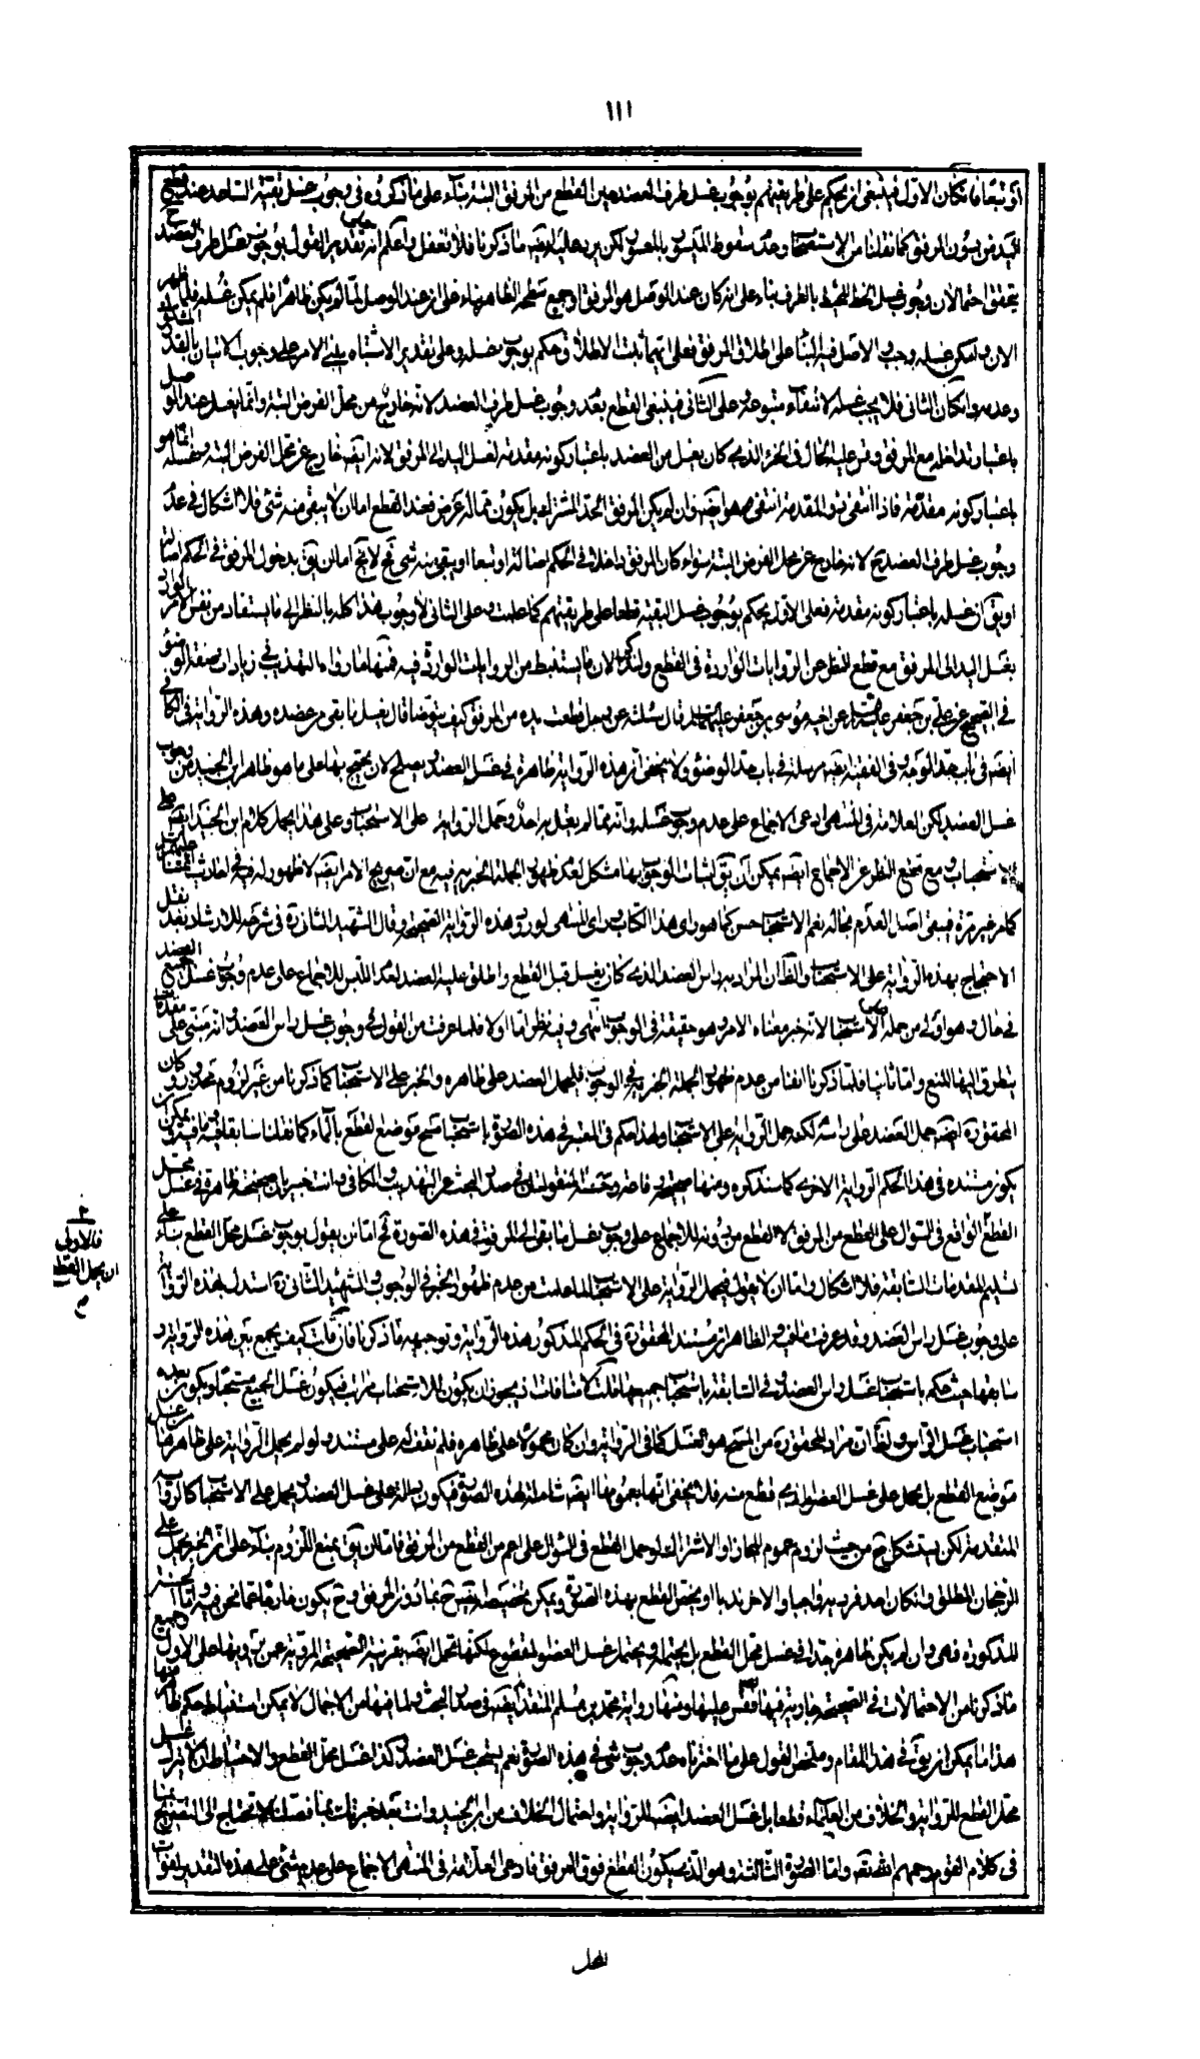 ١١١
او تبعا فان كان الاول فينبغى ان يحكم على طريقتهم بوجوب غسل طرف العضد حين القطع من المرفق البتة بناء على ما ذكروه فى وجوب غسل بقية الساعد عند قطع
اليد من دون المرفق كما نقلنا من الاستصحاب وعدم سقوط الميسور بالمعسور لكن يرد عليه ايضا ما ذكرنا فلا تغفل واعلم ان تقدير القول بوجوب غسل طرف العضد ح
يتحقق احتمالان وجوب غسل الخط المحيط بالطرف بناء على انه كان عند الوصل هو المرفق او جميع سطحه الظاهر بناء على ان عند الوصل لما لم يكن ظاهرا فلم يمكن غسله فلما ظهر
الان وامكن غسله وجب والاصل فيه البناء على اطلاق المرفق فعلى ايهما ثبت الاطلاق حكم بوجوب غسله وعلى تقدير الاشتباه يبنى الامر على وجوب الاتيان بالقدر المشكوك
وعدمه وان كان الثانى فلا يجب غسله لانتفاء متبوعه على الثانى فينبغى القطع بعدم وجوب غسل طرف العضد لانه خارج من محل الفرض البتة وانما يغسل عند الوصل
باعتبار تداخله مع المرفق وقس عليه الحال فى الجزء الذى كان يغسل من العضد باعتبار كونه مقدمة لغسل اليد الى المرفق لانه ايضا خارج عن محل الفرض البتة وغسله انما هو
باعتبار كونه مقدمة فاذا انتفى ذو المقدمة انتفى هو ايضا وان لم يكن المرفق الحد المشترك بل يكون مما له عرض فعند القطع اما ان لا يبقى منه شئ فلا اشكال فى عدم
وجوب غسل طرف العضد ح لانه خارج عن محل الفرض البتة سواء كان المرفق داخلا فى الحكم اصالة او تبعا او يبقى منه شئ فح لا يخ اما ان يق بدخول المرفق فى الحكم اصالة
او يق ان غسله باعتبار كونه مقدمة فعلى الاول يحكم بوجوب غسل البقية قطعا على طريقتهم كما علمت وعلى الثانى لا وجوب هذا كله بالنظر الى ما يستفاد من نفس الامر الوارد
بغسل اليد الى المرفق مع قطع النظر عن الروايات الواردة فى القطع ولنذكر الان ما يستنبط من الروايات الواردة فيه فمنها ما رواه التهذيب فى زيادات صفة الوضوء
فى الصحيح عن على بن جعفر عن اخيه موسى بن جعفر عليهما السلام قال سئلته عن رجل قطعت يده من المرفق كيف يتوضا قال يغسل ما بقى من عضده وهذه الرواية فى الكافى
ايضا فى باب حد الوجه وفى الفقيه ايضا مرسلة فى باب حد الوضوء ولا يخفى ان هذه الرواية ظاهرة فى غسل العضد ويصلح لان يحتج بها على ما هو ظاهر ابن الجنيد من وجوب
غسل العضد لكن العلامة فى المنتهى ادعى الاجماع على عدم وجوب غسله وانه مما لم يقل به احد وحمل الرواية على الاستحباب وعلى هذا يحمل كلام ابن الجنيد ايضا على
الاستحباب ومع قطع النظر عن الاجماع ايضا يمكن ان يق اثبات الوجوب بها مشكل لعدم ظهور الجملة الخبرية فيه مع ان صريح الامر ايضا لا ظهور له فيه فى احاديث ائمتنا عليهم السلام
كما مر غير مرة فيبقى اصل العدم بحاله نعم الاستحباب حسن كما هو راى هذا الكتاب وراى المنتهى لورود هذه الرواية الصحيحة وقال الشهيد الثانى ره فى شرحه للارشاد بعد نقل
الاحتجاج بهذه الرواية على الاستحباب والظ ان المراد به راس العضد الذى كان يغسل قبل القطع واطلق عليه العضد لعدم اللبس للاجماع على عدم وجوب غسل جميع العضد
فى حال وهو اولى من حمله الاستحباب لانه خبر معناه الامر وهو حقيقة فى الوجوب انتهى وفيه نظر اما اولا فلما عرفت من القول فى وجوب غسل راس العضد وانه مبتن على مقدمات
يتطرق اليها المنع واما ثانيا فلما ذكرنا انفا من عدم ظهور الجملة الخبرية فى الوجوب فليحمل العضد على ظاهره والخبر على الاستحباب كما ذكرنا من غير لزوم محذور وكان
المحقق ره ايضا حمل العضد على راسه لكنه حمل الرواية على الاستحباب ولهذا حكم فى المعتبر فى هذه الصورة باستحباب مسح موضع القطع بالماء كما نقلنا سابقا وفيه ما فيه ويمكن ان
يكون مستنده فى هذا الحكم الرواية الاخرى كما سنذكره ومنها صحيحة رفاعة وحسنته المنقولتان فى صدر البحث عن التهذيب والكافى وانت خبير بان صحيحته ظاهرة فى غسل محل
القطع الواقع فى السؤال على القطع من المرفق لا القطع من دونه للاجماع على وجوب غسل ما بقى الى المرفق فى هذه الصورة فح اما ان يقول بوجوب غسل محل القطع بناء على
تسليم المقدمات السابقة فلا اشكال واما ان لا يقول فيحمل الرواية على الاستحباب لما علمت من عدم ظهور الخبر فى الوجوب والشهيد الثانى ره استدل بهذه الرواية
على وجوب غسل راس العضد وقد عرفت ما فيه والظاهر ان مستند المحقق ره فى الحكم المذكور هذه الرواية وتوجيهه ما ذكرنا فان قلت كيف يجمع بين هذه الرواية و
سابقها حيث حكم باستحباب غسل راس العضد وفى السابقة باستحباب جميعها قلت لا منافاة اذ يجوز ان يكون للاستحباب مراتب فيكون غسل الجميع مستحبا ويكون بعده
استحباب غسل الراس والظ ان مراد المحقق ره من المسح هو الغسل كما فى الرواية وان كان محمولا على ظاهره فلم نقف له على مستند ولو لم يحمل الرواية على ظاهرها من غسل
موضع القطع بل يحمل على غسل العضو الذى قطع منه فلا يخفى انها بعمومها ايضا شاملة لهذه الصورة فيكون دالة على غسل العضد ويحمل على الاستحباب كالرواية
المتقدمة لكن يستشكل ح من حيث لزوم عموم المجاز او الاشتراك لو حمل القطع فى السؤال على اعم من القطع من المرفق فاما ان يق بمنع اللزوم بناء على ان الخبر يحمل على
الرجحان المطلق وان كان احد فرديه واجبا والاخر ندبا او يختص القطع بهذه الصورة ويمكن تخصيصه ايضا ح بما دون المرفق وح يكون خارجا عما نحن فيه واما الحسنة
المذكورة فهى وان لم يكن ظاهرة جدا فى غسل محل القطع بل يحتمله ويحتمل غسل العضو المقطوع لكنها تحمل ايضا بقرينة الصحيحة المروية عن رفاعة على الاول وجميع
ما ذكرنا من الاحتمالات فى الصحيحة جارية فيها فقس عليها ومنها رواية محمد بن مسلم المتقدمة ايضا فى صدر البحث ولما فيها من الاجمال لا يمكن استنباط حكم ظاهر منها
هذا ما يمكن ان يق فى هذا المقام وملخص القول على ما اخترناه عدم وجوب شئ فى هذه الصورة نعم يستحب غسل العضد وكذا غسل محل القطع والاحتياط ان لا يترك غسل
محل القطع للرواية والخلاف من العلماء قطعا بل غسل العضد ايضا للرواية واحتمال الخلاف من ابن الجنيد وانت بعد خبرتك بما فصلنا لا تحتاج الى التصريح بما
فى كلام القوم رحمهم الله تعالى واما الصورة الثالثة وهو الذى يكون القطع فوق المرفق فادعى العلامة فى المنتهى الاجماع على عدم شئ على هذه التقدير لفوات
فالاولى
ان يحمل القطع
المحل